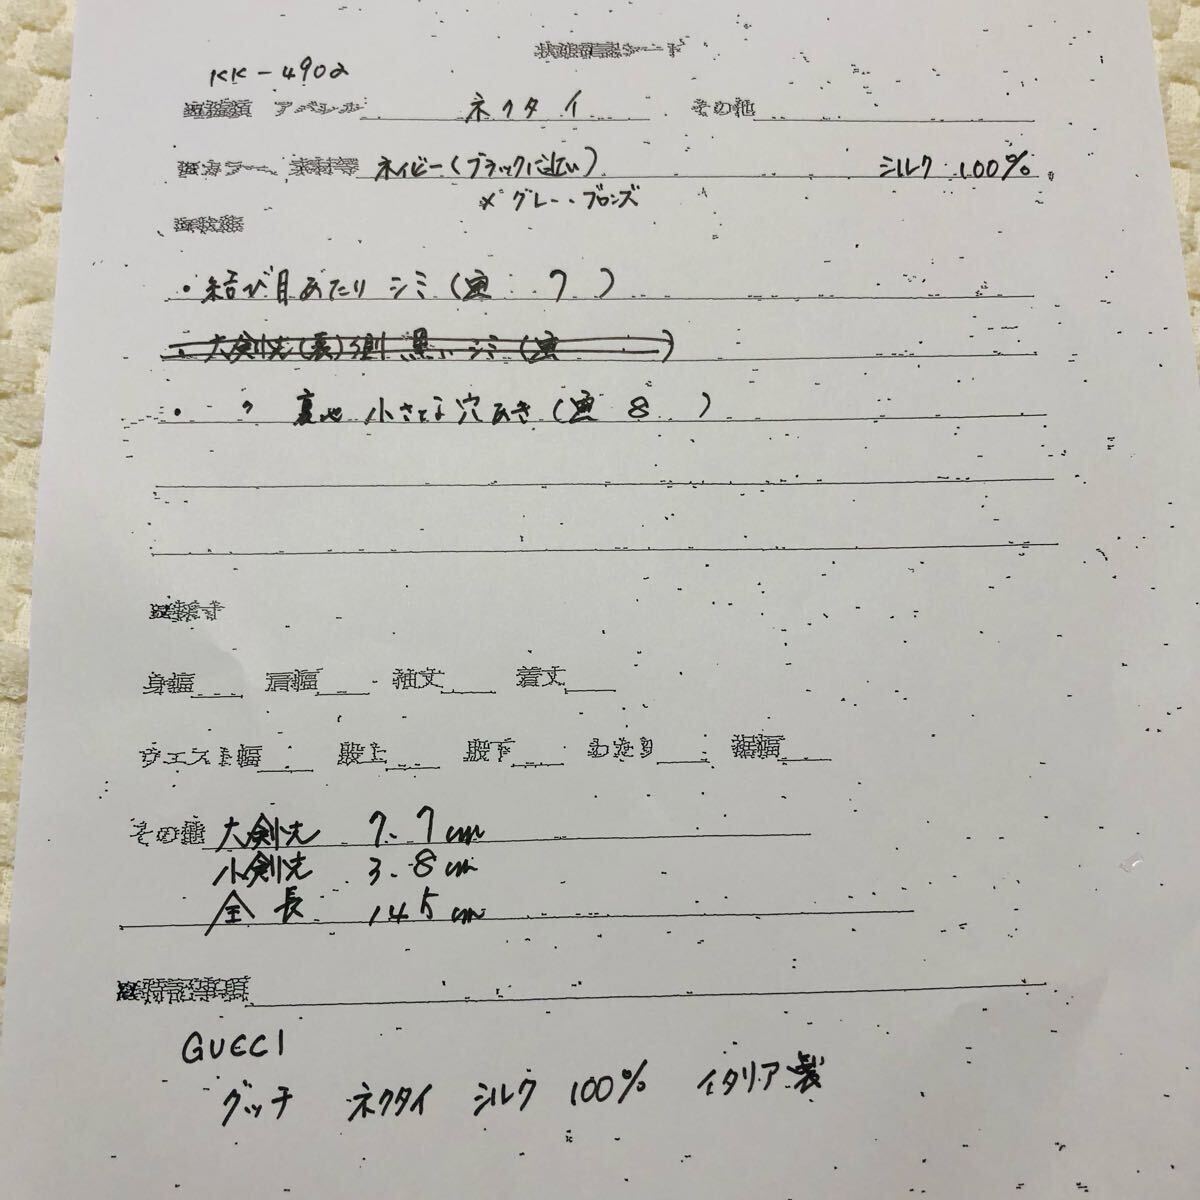 状態確認シート
KK-4902
アパレル ネクタイ その他
カラー、素材等 ネイビー(ブラックに近い) シルク 100%
× グレー・ブロンズ
・結び目あたり シミ(画 7 )
・大剣先(裏)側 黒い シミ(画 )
・ 〃 裏地 小さな穴あき(画 8 )
採寸
身幅 肩幅 袖丈 着丈
ウエスト幅 股上 股下 わたり 裾幅
その他 大剣先 7.7cm
小剣先 3.8cm
全長 145cm
特記事項
GUCCI
グッチ ネクタイ シルク 100% イタリア製